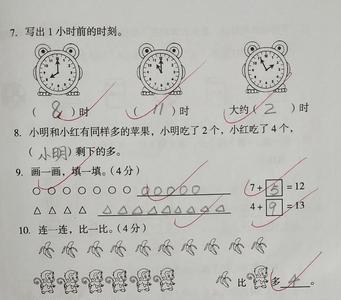 7. 写出1小时前的时刻。
( 8 )时 ( 11 )时 大约( 2 )时
8. 小明和小红有同样多的苹果，小明吃了2个，小红吃了4个，
( 小明 )剩下的多。
9. 画一画，填一填。(4分)
7 + 5 = 12
4 + 9 = 13
10. 连一连，比一比。(4分)
比 多 4 。